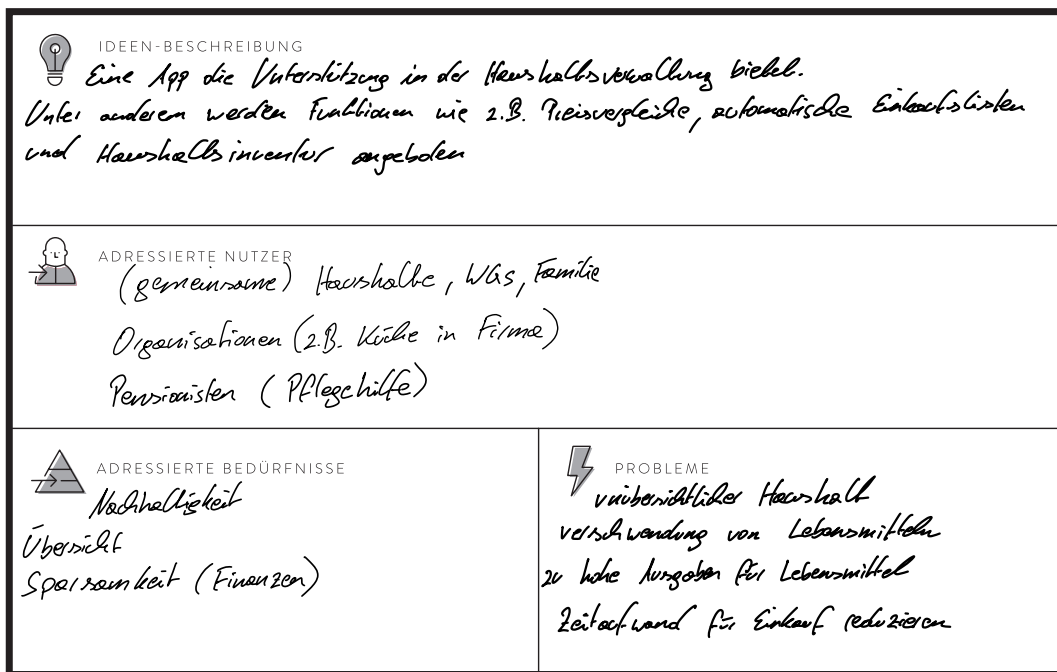 IDEEN-BESCHREIBUNG
Eine App die Unterstützung in der Haushaltsverwaltung bietet.
Unter anderem werden Funktionen wie z.B. Preisvergleiche, automatische Einkaufslisten
und Haushaltsinventur angeboten
ADRESSIERTE NUTZER
(gemeinsame) Haushalte, WGs, Familie
Organisationen (z.B. Küche in Firma)
Pensionisten (Pflegehilfe)
ADRESSIERTE BEDÜRFNISSE
Nachhaltigkeit
Übersicht
Sparsamkeit (Finanzen)
PROBLEME
unübersichtlicher Haushalt
verschwendung von Lebensmitteln
zu hohe Ausgaben für Lebensmittel
Zeitaufwand für Einkauf reduzieren